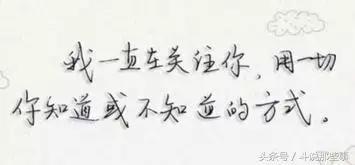 我一直在关注你,用一切
你知道或不知道的方式。
头条号 /